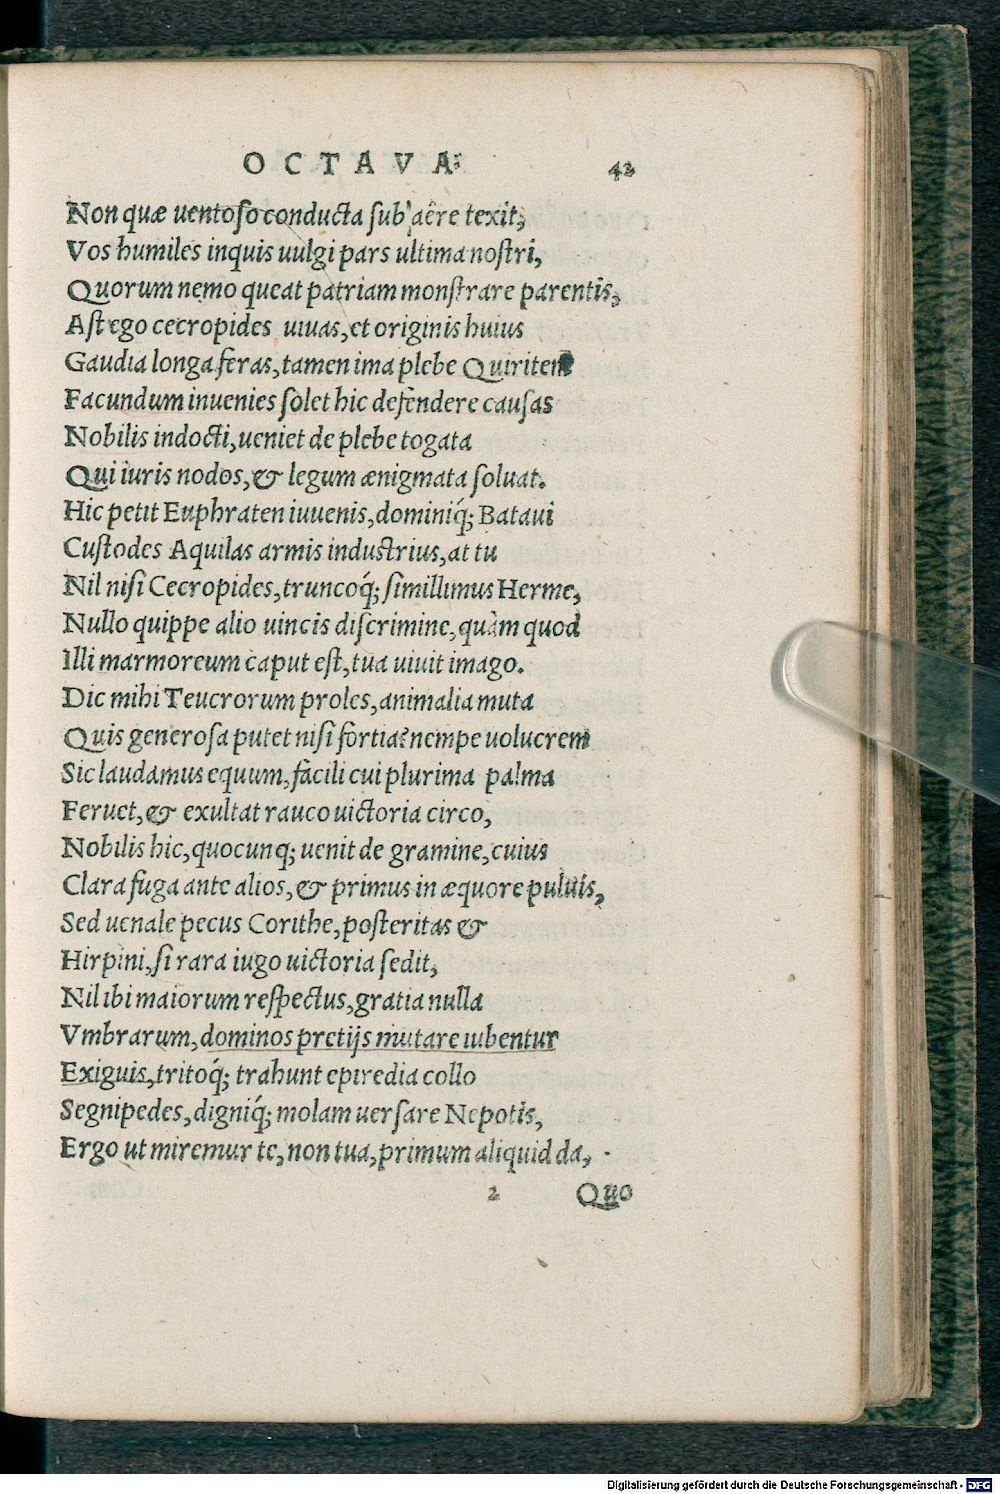 OCTAVA. 42
Non quæ uentoso conducta sub aêre texit,
Vos humiles inquis uulgi pars ultima nostri,
Quorum nemo queat patriam monstrare parentis,
Ast ego cecropides uiuas, et originis huius
Gaudia longa feras, tamen ima plebe Quiritem
Facundum inuenies solet hic defendere causas
Nobilis indocti, ueniet de plebe togata
Qui iuris nodos, & legum ænigmata soluat.
Hic petit Euphraten iuuenis, dominiq́; Bataui
Custodes Aquilas armis industrius, at tu
Nil nisi Cecropides, truncoq́; simillimus Herme,
Nullo quippe alio uincis discrimine, quàm quod
Illi marmoreum caput est, tua uiuit imago.
Dic mihi Teucrorum proles, animalia muta
Quis generosa putet nisi fortia? nempe uolucrem
Sic laudamus equum, facili cui plurima palma
Feruet, & exultat rauco uictoria circo,
Nobilis hic, quocunq; uenit de gramine, cuius
Clara fuga ante alios, & primus in æquore puluis,
Sed uenale pecus Corithe, posteritas &
Hirpini, si rara iugo uictoria sedit,
Nil ibi maiorum respectus, gratia nulla
Vmbrarum, dominos pretijs mutare iubentur
Exiguis, tritoq́; trahunt epiredia collo
Segnipedes, digniq́; molam uersare Nepotis,
Ergo ut miremur te, non tua, primum aliquid da,
2 Quo
Digitalisierung gefördert durch die Deutsche Forschungsgemeinschaft - DFG